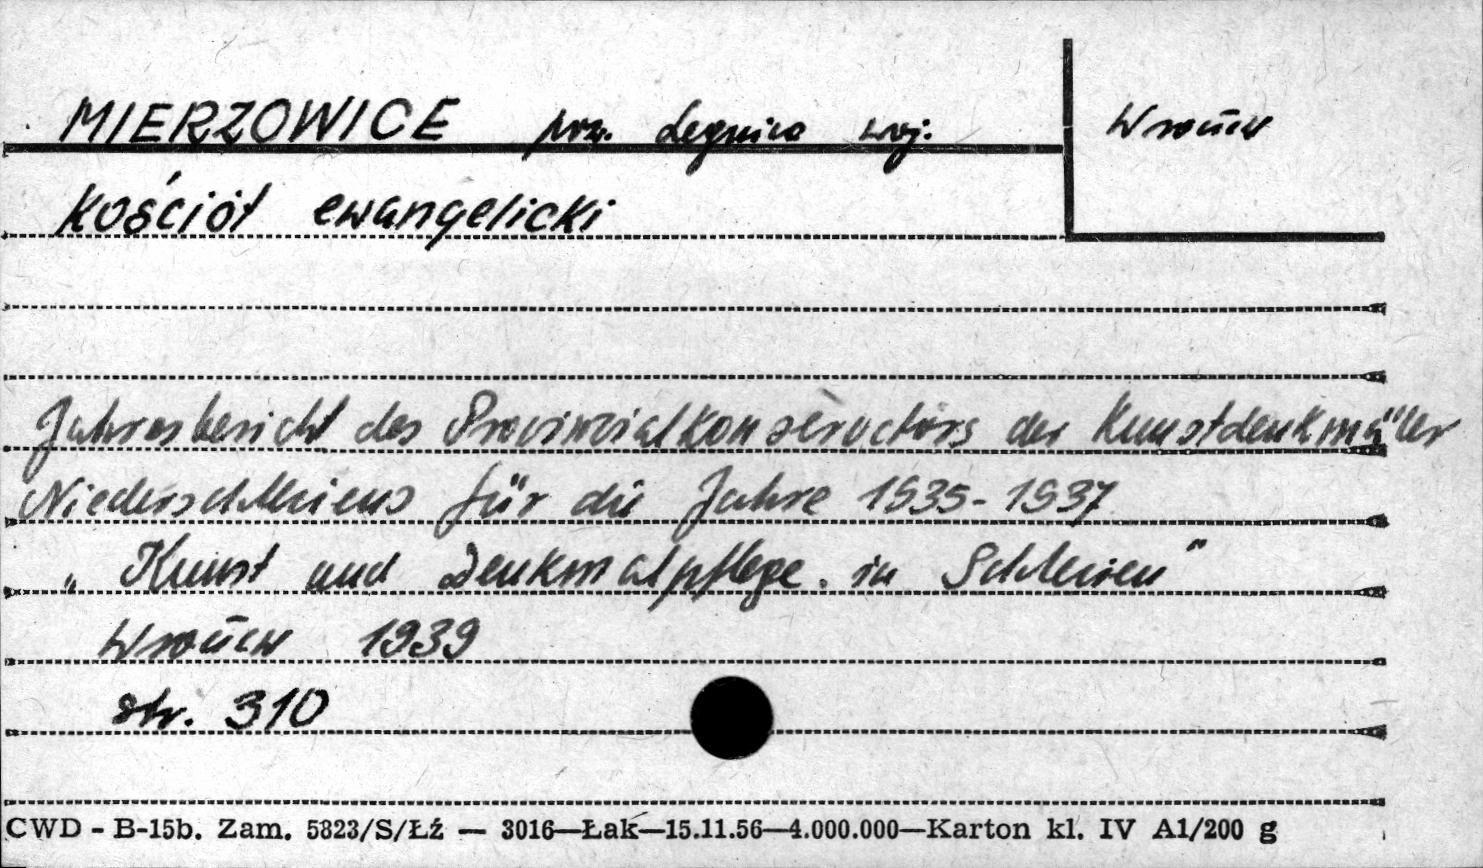 MIERZOWICE pow. Legnica woj. Wrocław
Kościół ewangelicki
Jahresbericht des Provinzialkonservators der Kunstdenkmäler
Niederschlesiens für die Jahre 1935-1937
„Kunst und Denkmalpflege in Schlesien"
Wrocław 1939
str. 310
CWD - B-15b. Zam. 5823/S/Łź — 3016—Łak—15.11.56—4.000.000—Karton kl. IV A1/200 g